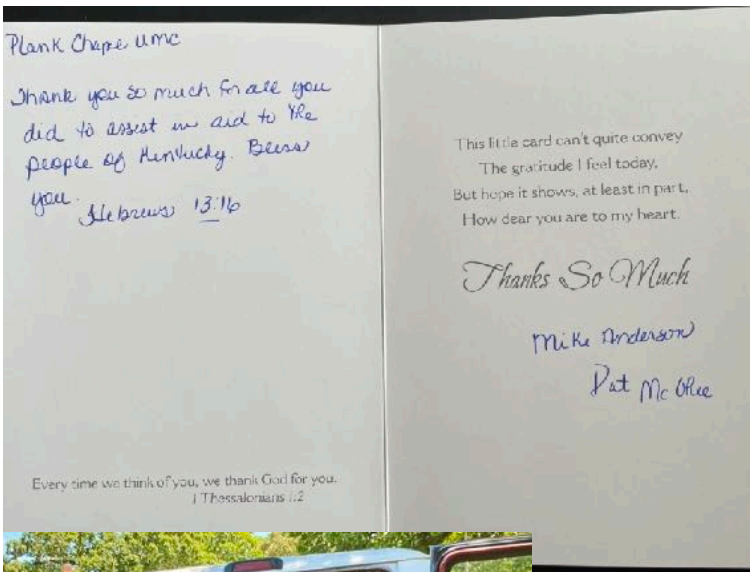 Plank Chape UMC
Thank you so much for all you
did to assist in aid to the
people of Kentucky. Bless
you.
Hebrews 13:16
Every time we think of you, we thank God for you.
1 Thessalonians 1:2
This little card can't quite convey
The gratitude I feel today,
But hope it shows, at least in part,
How dear you are to my heart.
Thanks So Much
Mike Anderson
Pat